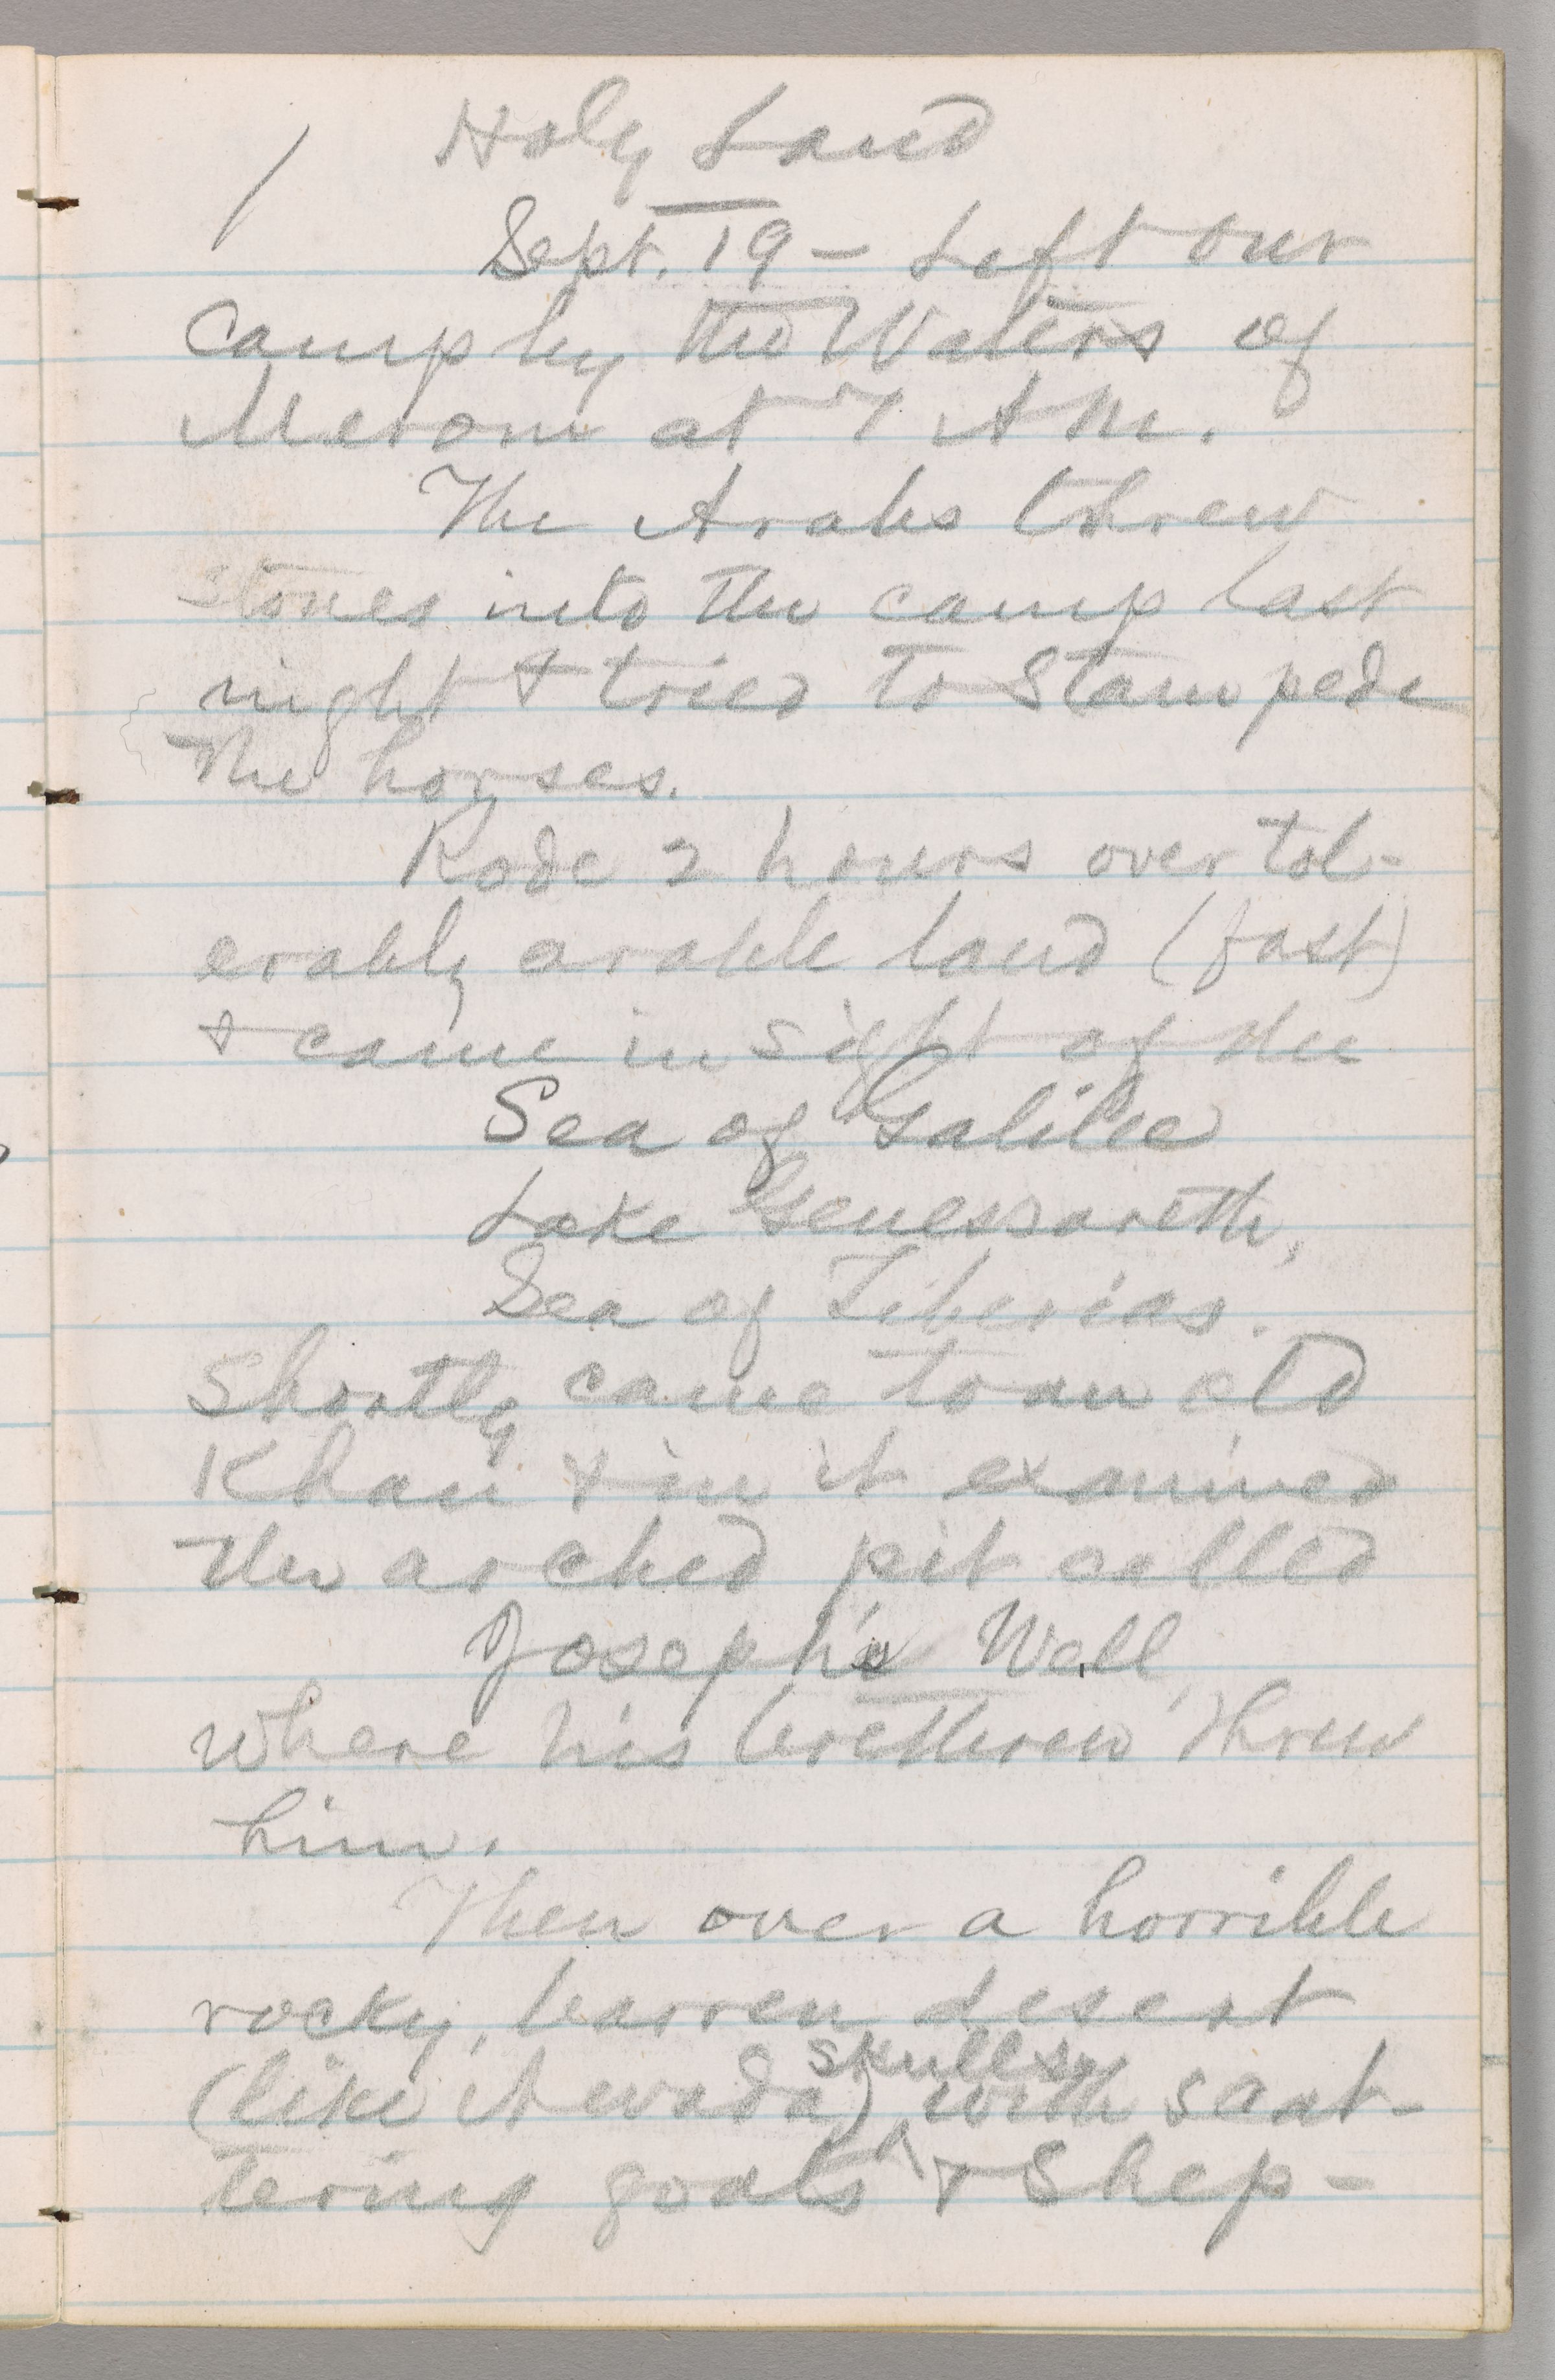 Holy Land
Sept. 19 — Left our
camp by the Waters of
Merom at 7 AM.
The Arabs threw
stones into the camp last
night & tried to stampede
the horses.
Rode 2 hours over tol-
erably arable land (fast)
& came in sight of the
Sea of Galilee
Lake Genessareth,
Sea of Tiberias.
Shortly came to an old
Khan & in it examined
the arched pit called
Joseph's Well,
where his brethren threw
him.
Then over a horrible
rocky, barren desert
(like Nevada) with scat-
skulls,
tering goats & Shep-